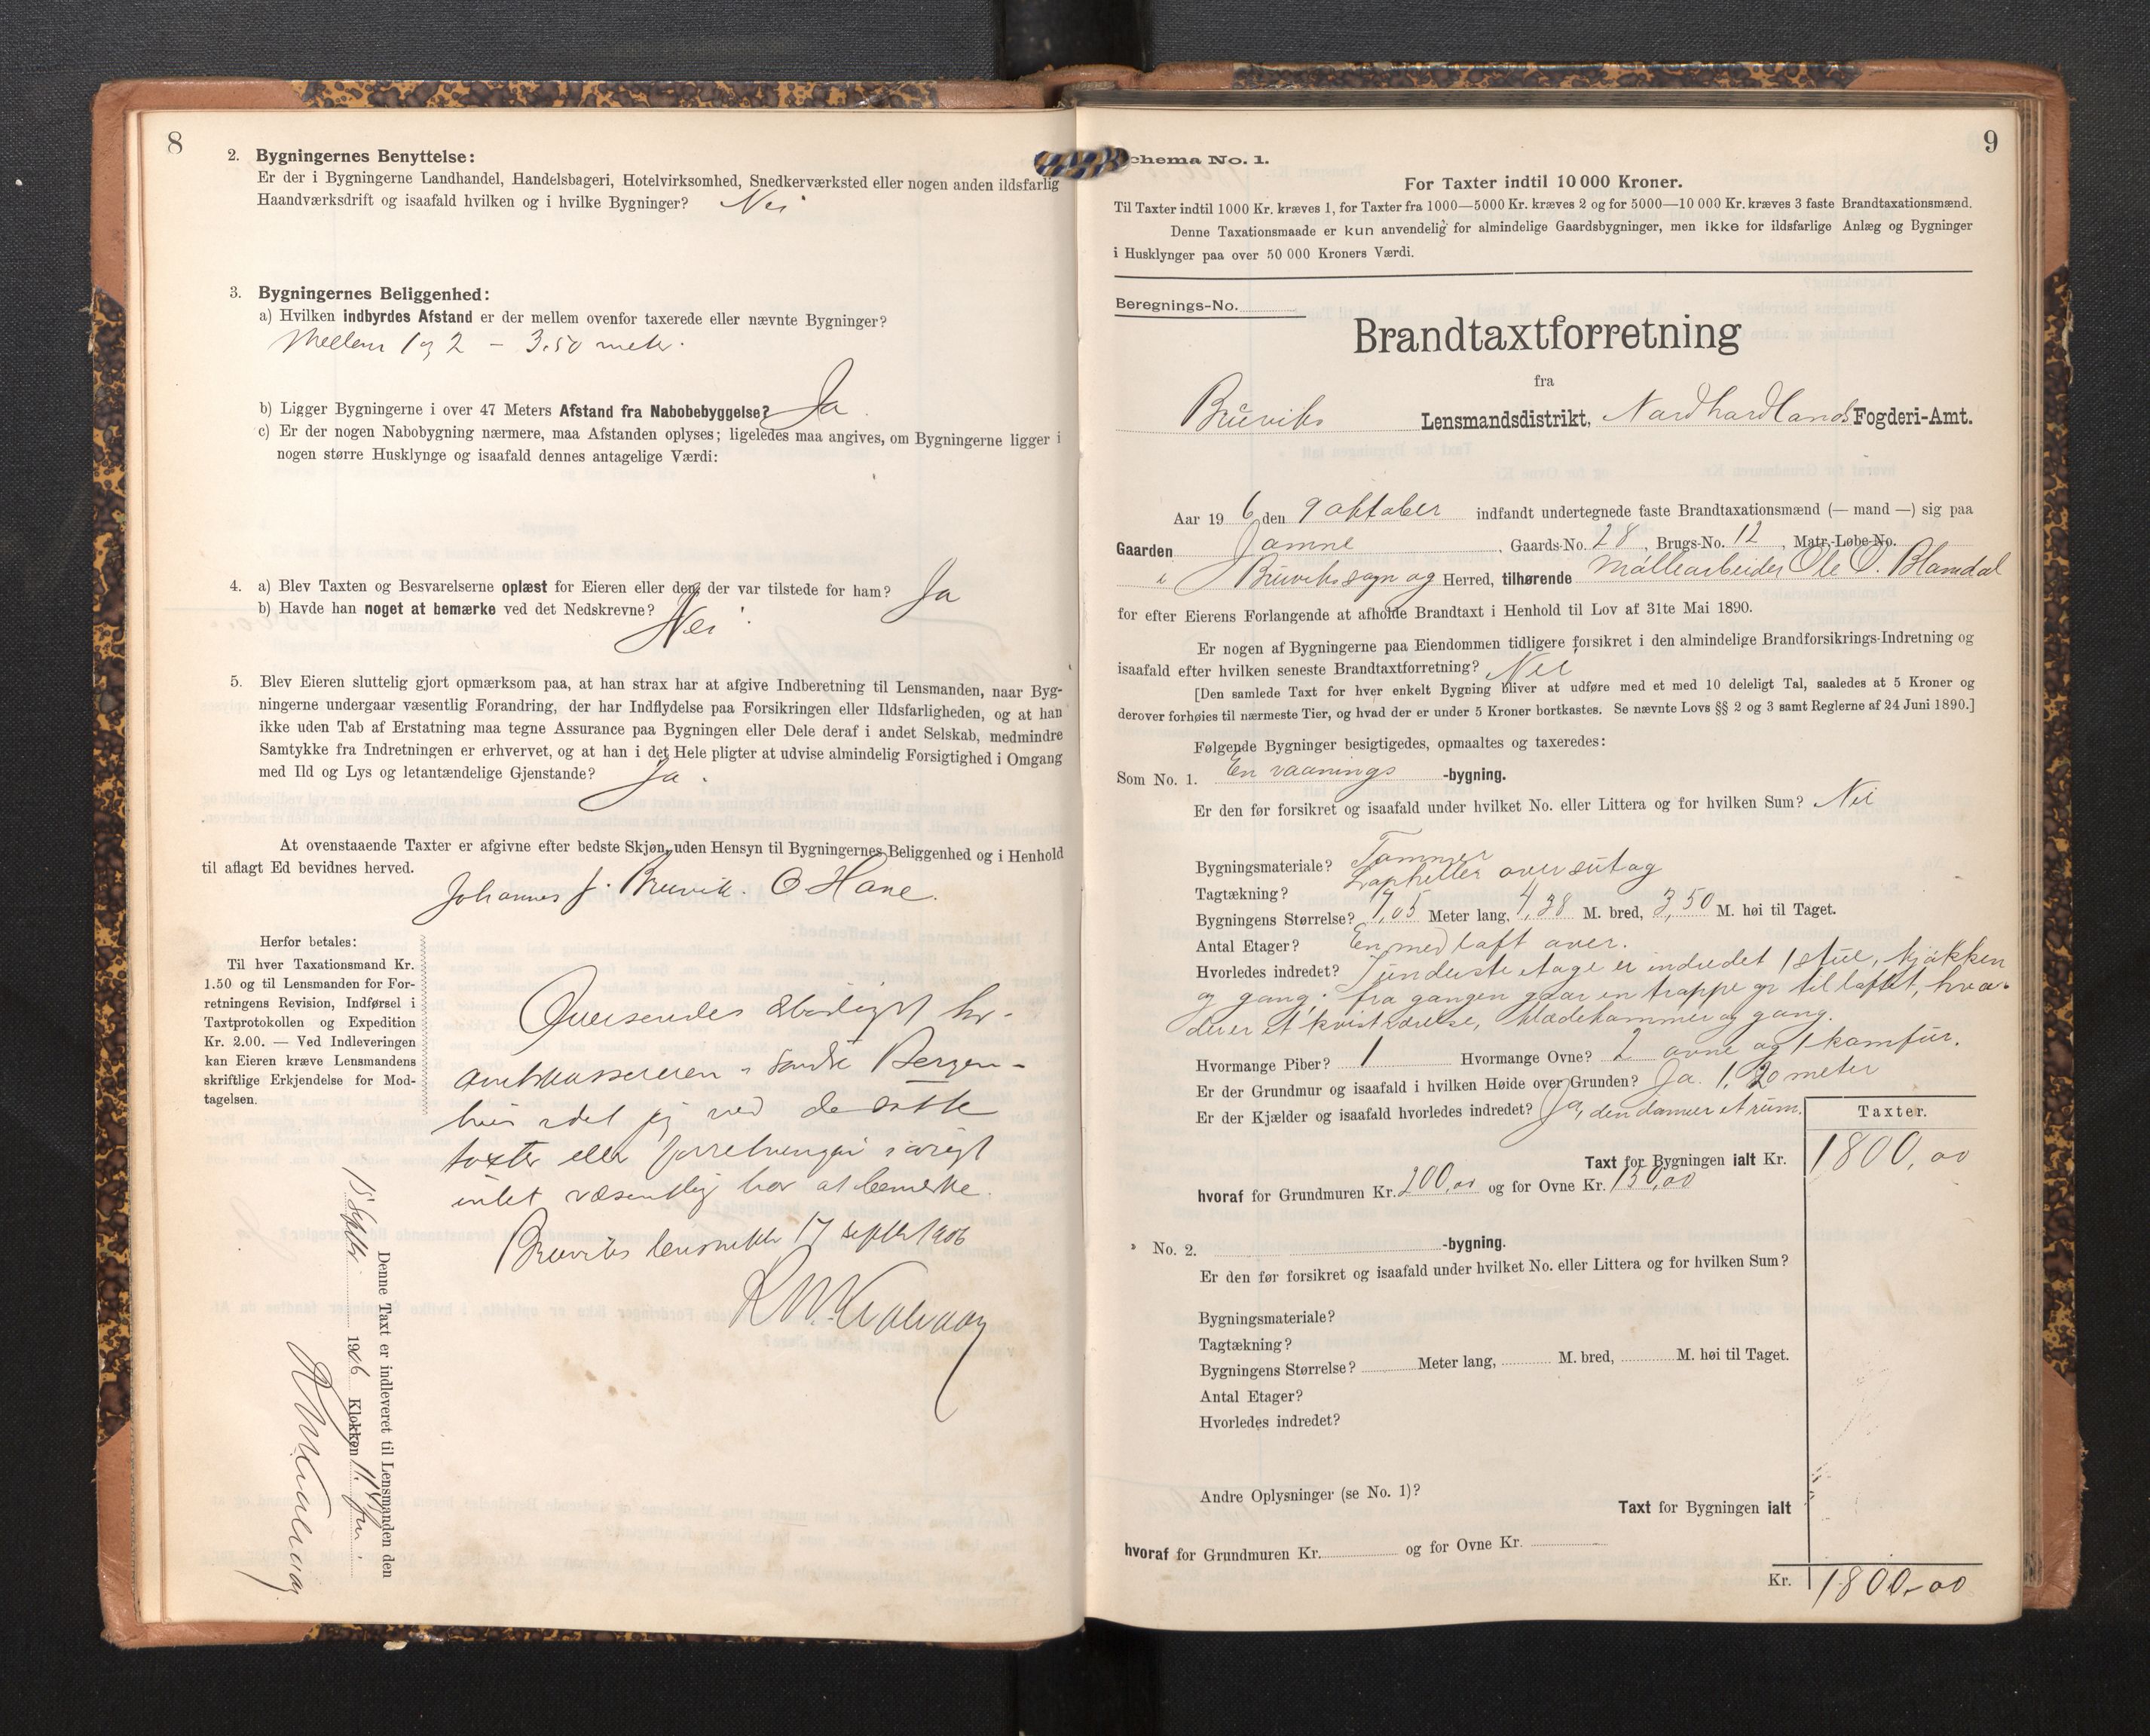 8
2. Bygningernes Benyttelse:
Er der i Bygningerne Landhandel, Handelsbageri, Hotelvirksomhed, Snedkerværksted eller nogen anden ildsfarlig
Haandværksdrift og isaafald hvilken og i hvilke Bygninger? Nei
3. Bygningernes Beliggenhed:
a) Hvilken indbyrdes Afstand er der mellem ovenfor taxerede eller nævnte Bygninger?
Mellem 1 og 2 - 3,50 meter.
b) Ligger Bygningerne i over 47 Meters Afstand fra Nabobebyggelse? Ja.
c) Er der nogen Nabobygning nærmere, maa Afstanden oplyses; ligeledes maa angives, om Bygningerne ligger i
nogen større Husklynge og isaafald dennes antagelige Værdi:
4. a) Blev Taxten og Besvarelserne oplæst for Eieren eller den, der var tilstede for ham? Ja
b) Havde han noget at bemærke ved det Nedskrevne? Nei.
5. Blev Eieren sluttelig gjort opmærksom paa, at han strax har at afgive Indberetning til Lensmanden, naar Byg-
ningerne undergaar væsentlig Forandring, der har Indflydelse paa Forsikringen eller Ildsfarligheden, og at han
ikke uden Tab af Erstatning maa tegne Assurance paa Bygningen eller Dele deraf i andet Selskab, medmindre
Samtykke fra Indretningen er erhvervet, og at han i det Hele pligter at udvise almindelig Forsigtighed i Omgang
med Ild og Lys og letantændelige Gjenstande? Ja.
At ovenstaaende Taxter er afgivne efter bedste Skjøn uden Hensyn til Bygningernes Beliggenhed og i Henhold
til aflagt Ed bevidnes herved.
Johannes J. Bruvik. O Hane.
Herfor betales:
Til hver Taxationsmand Kr.
1.50 og til Lensmanden for For-
retningens Revision, Indførsel i
Taxtprotokollen og Expedition
Kr. 2.00. — Ved Indleveringen
kan Eieren kræve Lensmandens
skriftlige Erkjendelse for Mod-
tagelsen.
Oversendes ærbødigst hr.
amtskassereren i søndre Bergen-
hus idet jeg ved de satte
taxter eller forretningen iøvrigt
intet væsentlig har at bemerke.
Bruviks lensmktr 17 septbr 1906
Denne Taxt er indleveret til Lensmanden den
15 Septbr. 1906 Klokken 11 fm.
9
Schema No. 1.
For Taxter indtil 10 000 Kroner.
Til Taxter indtil 1000 Kr. kræves 1, for Taxter fra 1000—5000 Kr. kræves 2 og for 5000—10 000 Kr. kræves 3 faste Brandtaxationsmænd.
Denne Taxationsmaade er kun anvendelig for almindelige Gaardsbygninger, men ikke for ildsfarlige Anlæg og Bygninger
i Husklynger paa over 50 000 Kroners Værdi.
Beregnings-No.
Brandtaxtforretning
fra
Bruviks Lensmandsdistrikt, Nordhordlands Fogderi-Amt.
Aar 19 6 den 9 oktober indfandt undertegnede faste Brandtaxationsmænd (— mand —) sig paa
Gaarden Jamne, Gaards-No. 28, Brugs-No. 12, Matr.-Løbe-No.
i Bruviks sogn og Herred, tilhørende Møllearbeider Ole O. Blomdal
for efter Eierens Forlangende at afholde Brandtaxt i Henhold til Lov af 31te Mai 1890.
Er nogen af Bygningerne paa Eiendommen tidligere forsikret i den almindelige Brandforsikrings-Indretning og
isaafald efter hvilken seneste Brandtaxtforretning? Nei
[Den samlede Taxt for hver enkelt Bygning bliver at udføre med et med 10 deleligt Tal, saaledes at 5 Kroner og
derover forhøies til nærmeste Tier, og hvad der er under 5 Kroner bortkastes. Se nævnte Lovs §§ 2 og 3 samt Reglerne af 24 Juni 1890.]
Følgende Bygninger besigtigedes, opmaaltes og taxeredes:
Som No. 1. En vaanings -bygning.
Er den før forsikret og isaafald under hvilket No. eller Littera og for hvilken Sum? Nei
Bygningsmateriale? Tømmer
Tagtækning? Lapheller over sutag
Bygningens Størrelse? 7,05 Meter lang, 4,38 M. bred, 3,50 M. høi til Taget.
Antal Etager? En med loft over.
Hvorledes indredet? I underste etage er indredet 1 stue, kjøkken
og gang. fra gangen gaar en trappe op til loftet, hvor
der er et kvistværelse, klædekammer og gang.
Hvormange Piber? 1 Hvormange Ovne? 2 ovne og 1 komfur.
Er der Grundmur og isaafald i hvilken Høide over Grunden? Ja. 1,20 meter
Er der Kjælder og isaafald hvorledes indredet? Ja, den danner et rum.
Taxter.
Taxt for Bygningen ialt Kr. 1800,00
hvoraf for Grundmuren Kr. 200,00 og for Ovne Kr. 150,00
No. 2. -bygning.
Er den før forsikret og isaafald under hvilket No. eller Littera og for hvilken Sum?
Bygningsmateriale?
Tagtækning?
Bygningens Størrelse? Meter lang, M. bred, M. høi til Taget.
Antal Etager?
Hvorledes indredet?
Andre Oplysninger (se No. 1)?
Taxt for Bygningen ialt
hvoraf for Grundmuren Kr. og for Ovne Kr.
Kr. 1800,00